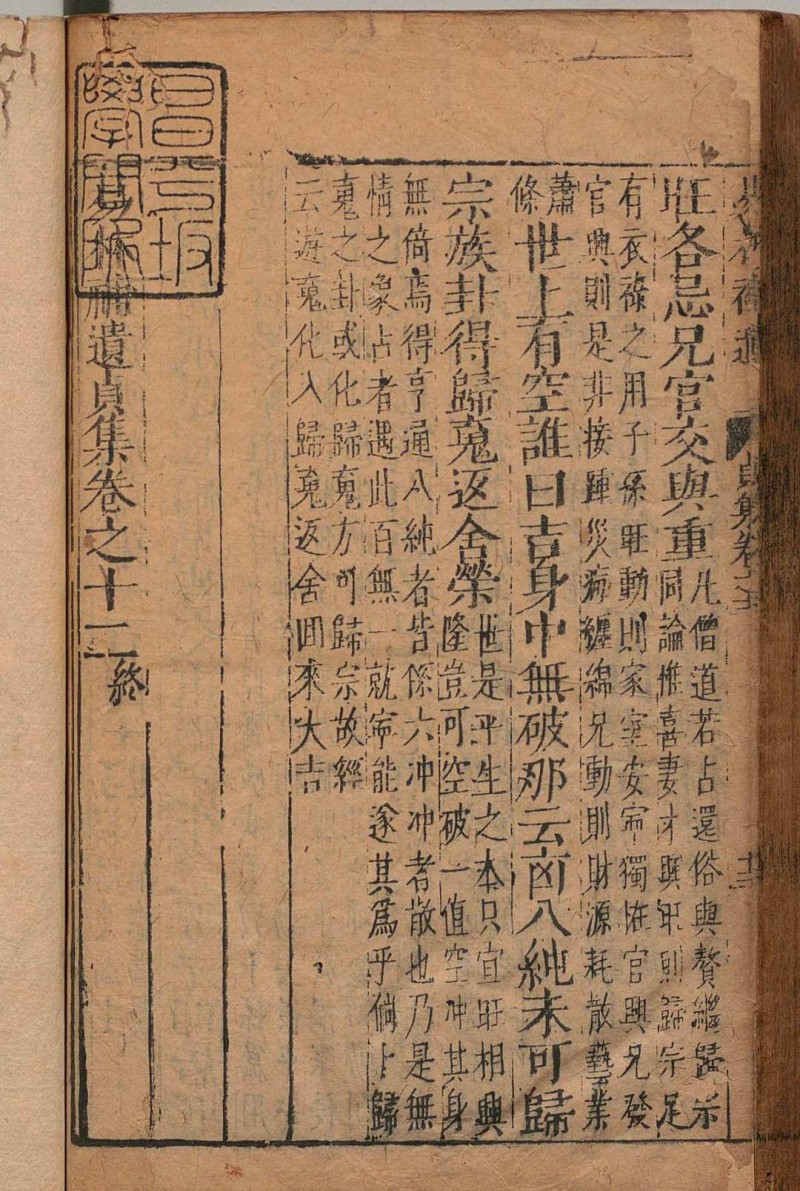 旺各忌兄官交與重
凡僧道若占還俗與贅繼歸宗
同論惟喜妻才興旺則歸宗足
有衣祿之用子孫旺動則家室安寧獨怕官興兄發
官興則是非接踵災病纏綿兄動則財源耗散藝業
蕭條
世上有空誰曰吉身中無破那云凶八純未可歸
宗族卦得歸䰟返舍榮
世是平生之本只宜旺相興
隆豈可空破一值空冲其身
無倚焉得亨通八純者皆係六冲冲者散也乃是無
情之象占者遇此百無一就寧能遂其爲乎倘卜歸
䰟之卦或化歸䰟方可歸宗故經
云遊䰟化入歸䰟返舍回來大吉
易林補遺貞集卷之十二
終